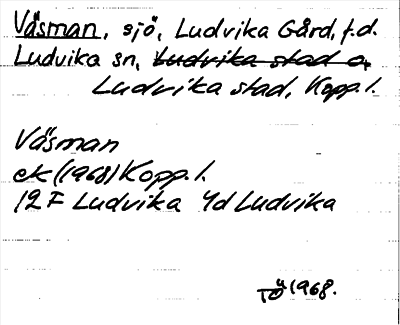 Väsman, sjö, Ludvika Gård, f.d.
Ludvika sn, Ludvika stad o.
Ludvika stad, Kopp.l.
Väsman
ek (1968) Kopp.l.
12 F Ludvika 4d Ludvika
1968.